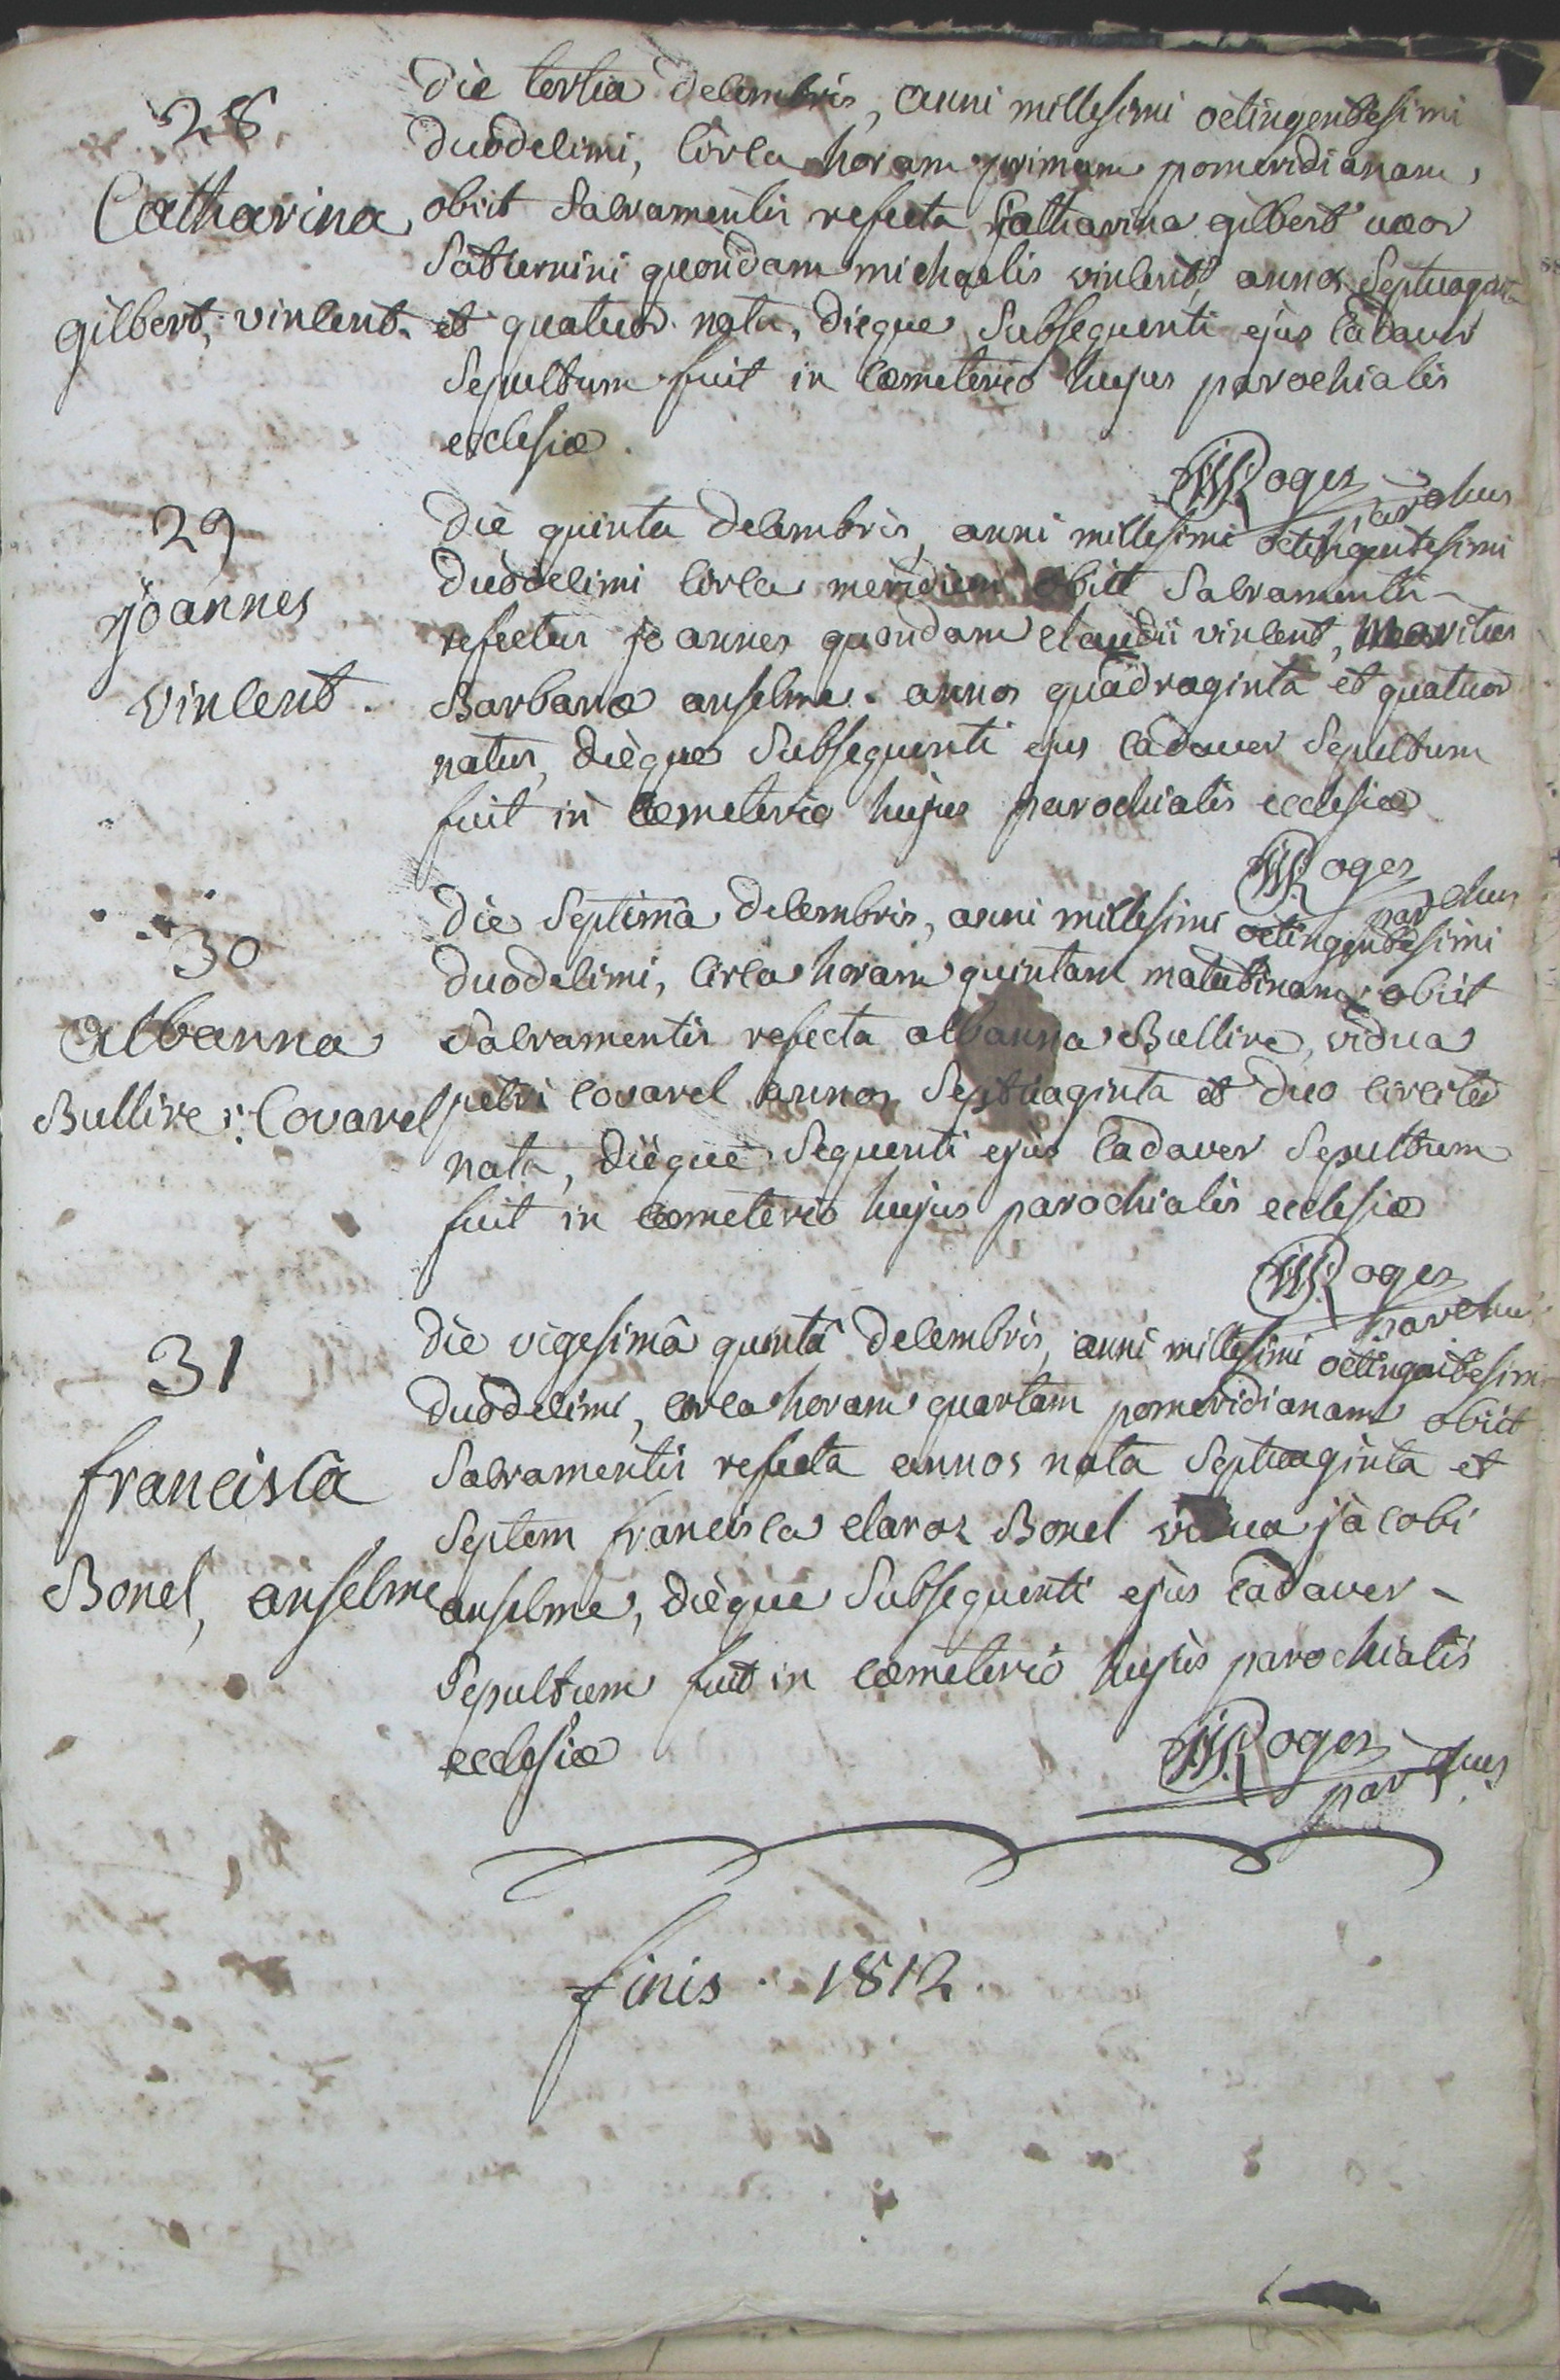 28
Catharina
gilbert, vincent.
Die tertia decembris, anni millesimi octingentesimi
duodecimi, circa horam primam pomeridianam,
obiit Sacramentis refecta Catharina gilbert uxor
Saturnini quondam michaelis vincent, annos Septuaginta
et quatuor nata, dieque Subsequenti ejus cadaver
Sepultum fuit in cœmeterio hujus parochialis
ecclesiæ.
Roges parochus
29
joannes
vincent.
Die quinta decembris, anni millesimi octingentesimi
duodecimi circa meridiem obiit Sacramentis
refectus joannes quondam claudii vincent, maritus
Barbaræ anselme. annos quadraginta et quatuor
natus, dieque Subsequenti ejus cadaver Sepultum
fuit in cœmeterio hujus parochialis ecclesiæ
Roges parochus
30
albanna
Bullire: Covarel
Die Septimâ decembris, anni millesimi octingentesimi
duodecimi, circa horam quintam matutinam obiit
Sacramentis refecta albanna Bullire, vidua
petri covarel annos Septuaginta et duo circiter
nata, dieque Sequenti ejus cadaver Sepultum
fuit in cœmeterio hujus parochialis ecclesiæ
Roges parochus
31
francisca
Bonel, anselme
Die vigesimâ quintâ decembris, anni millesimi octingentesimi
duodecimi, circa horam quartam pomeridianam obiit
Sacramentis refecta annos nata Septuaginta et
Septem francisca claraz Bonel vidua jacobi
anselme, dieque Subsequenti ejus cadaver
Sepultum fuit in cœmeterio hujus parochialis
ecclesiæ
Roges parochus
finis. 1812.